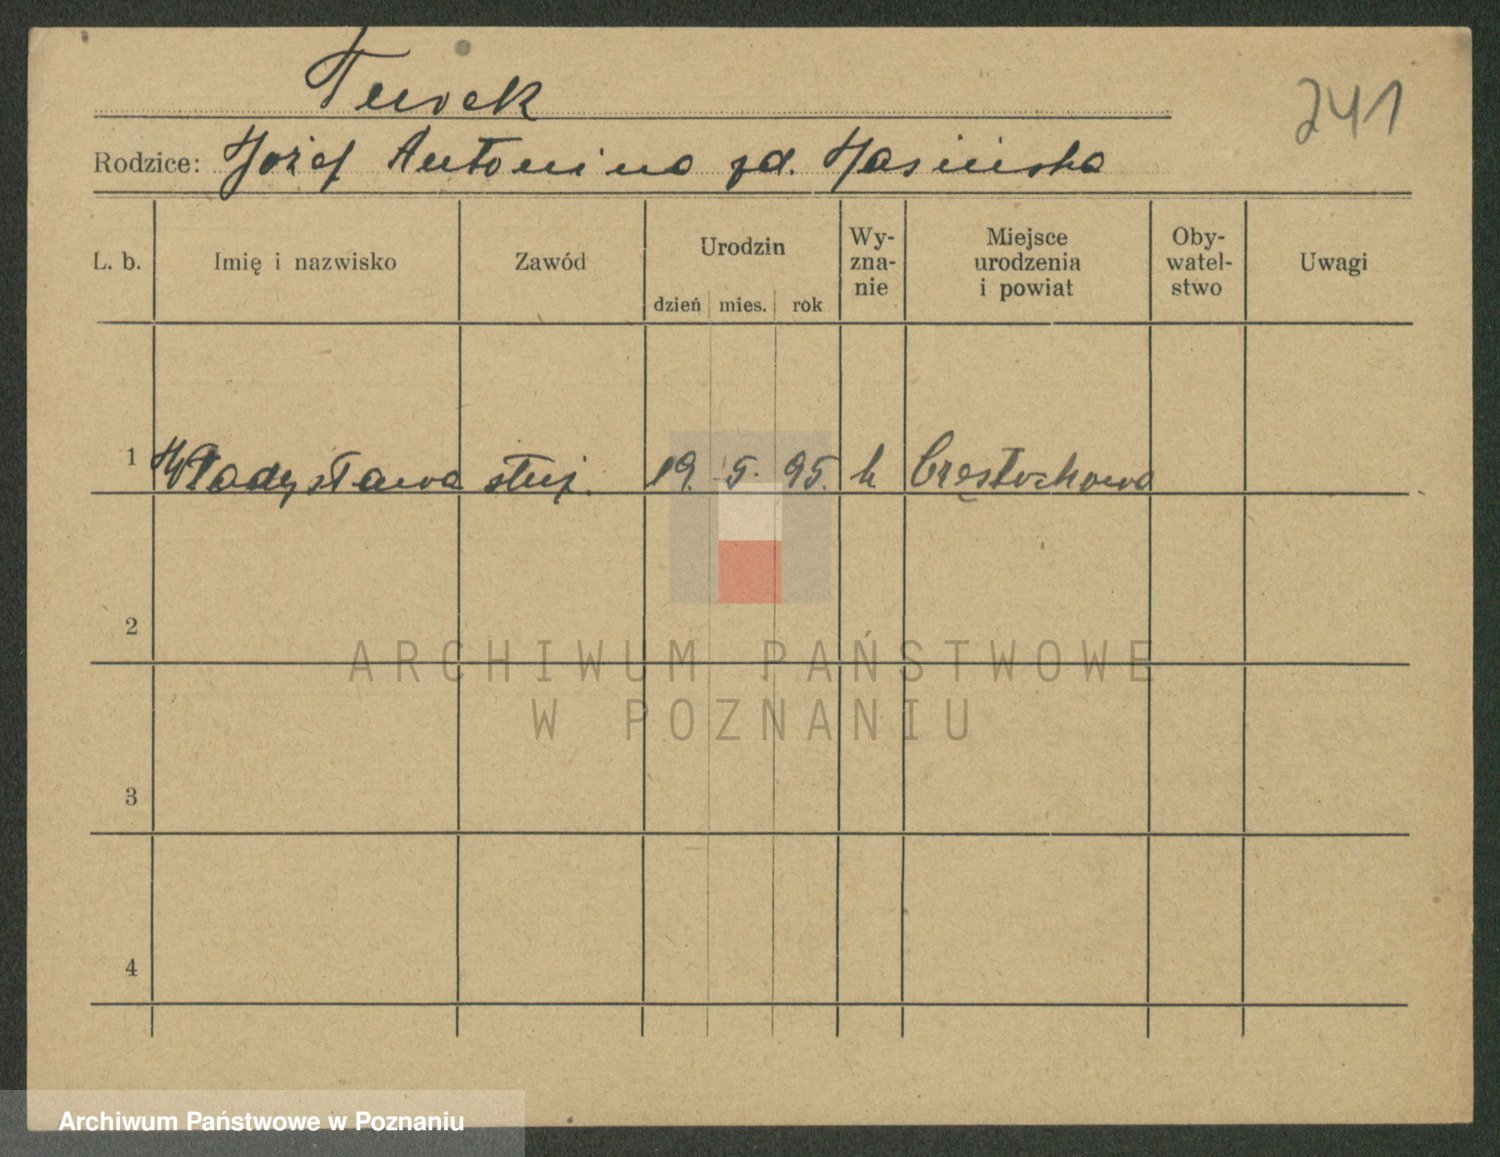 Turek
241
Rodzice: Józef Antonina zd. Jasińska
L. b. Imię i nazwisko Zawód Urodzin dzień mies. rok Wy-zna-nie Miejsce urodzenia i powiat Oby-watel-stwo Uwagi
1 Władysława służ. 19. 5. 95. k Częstochowa
2
ARCHIWUM PAŃSTWOWE
W POZNANIU
3
4
Archiwum Państwowe w Poznaniu